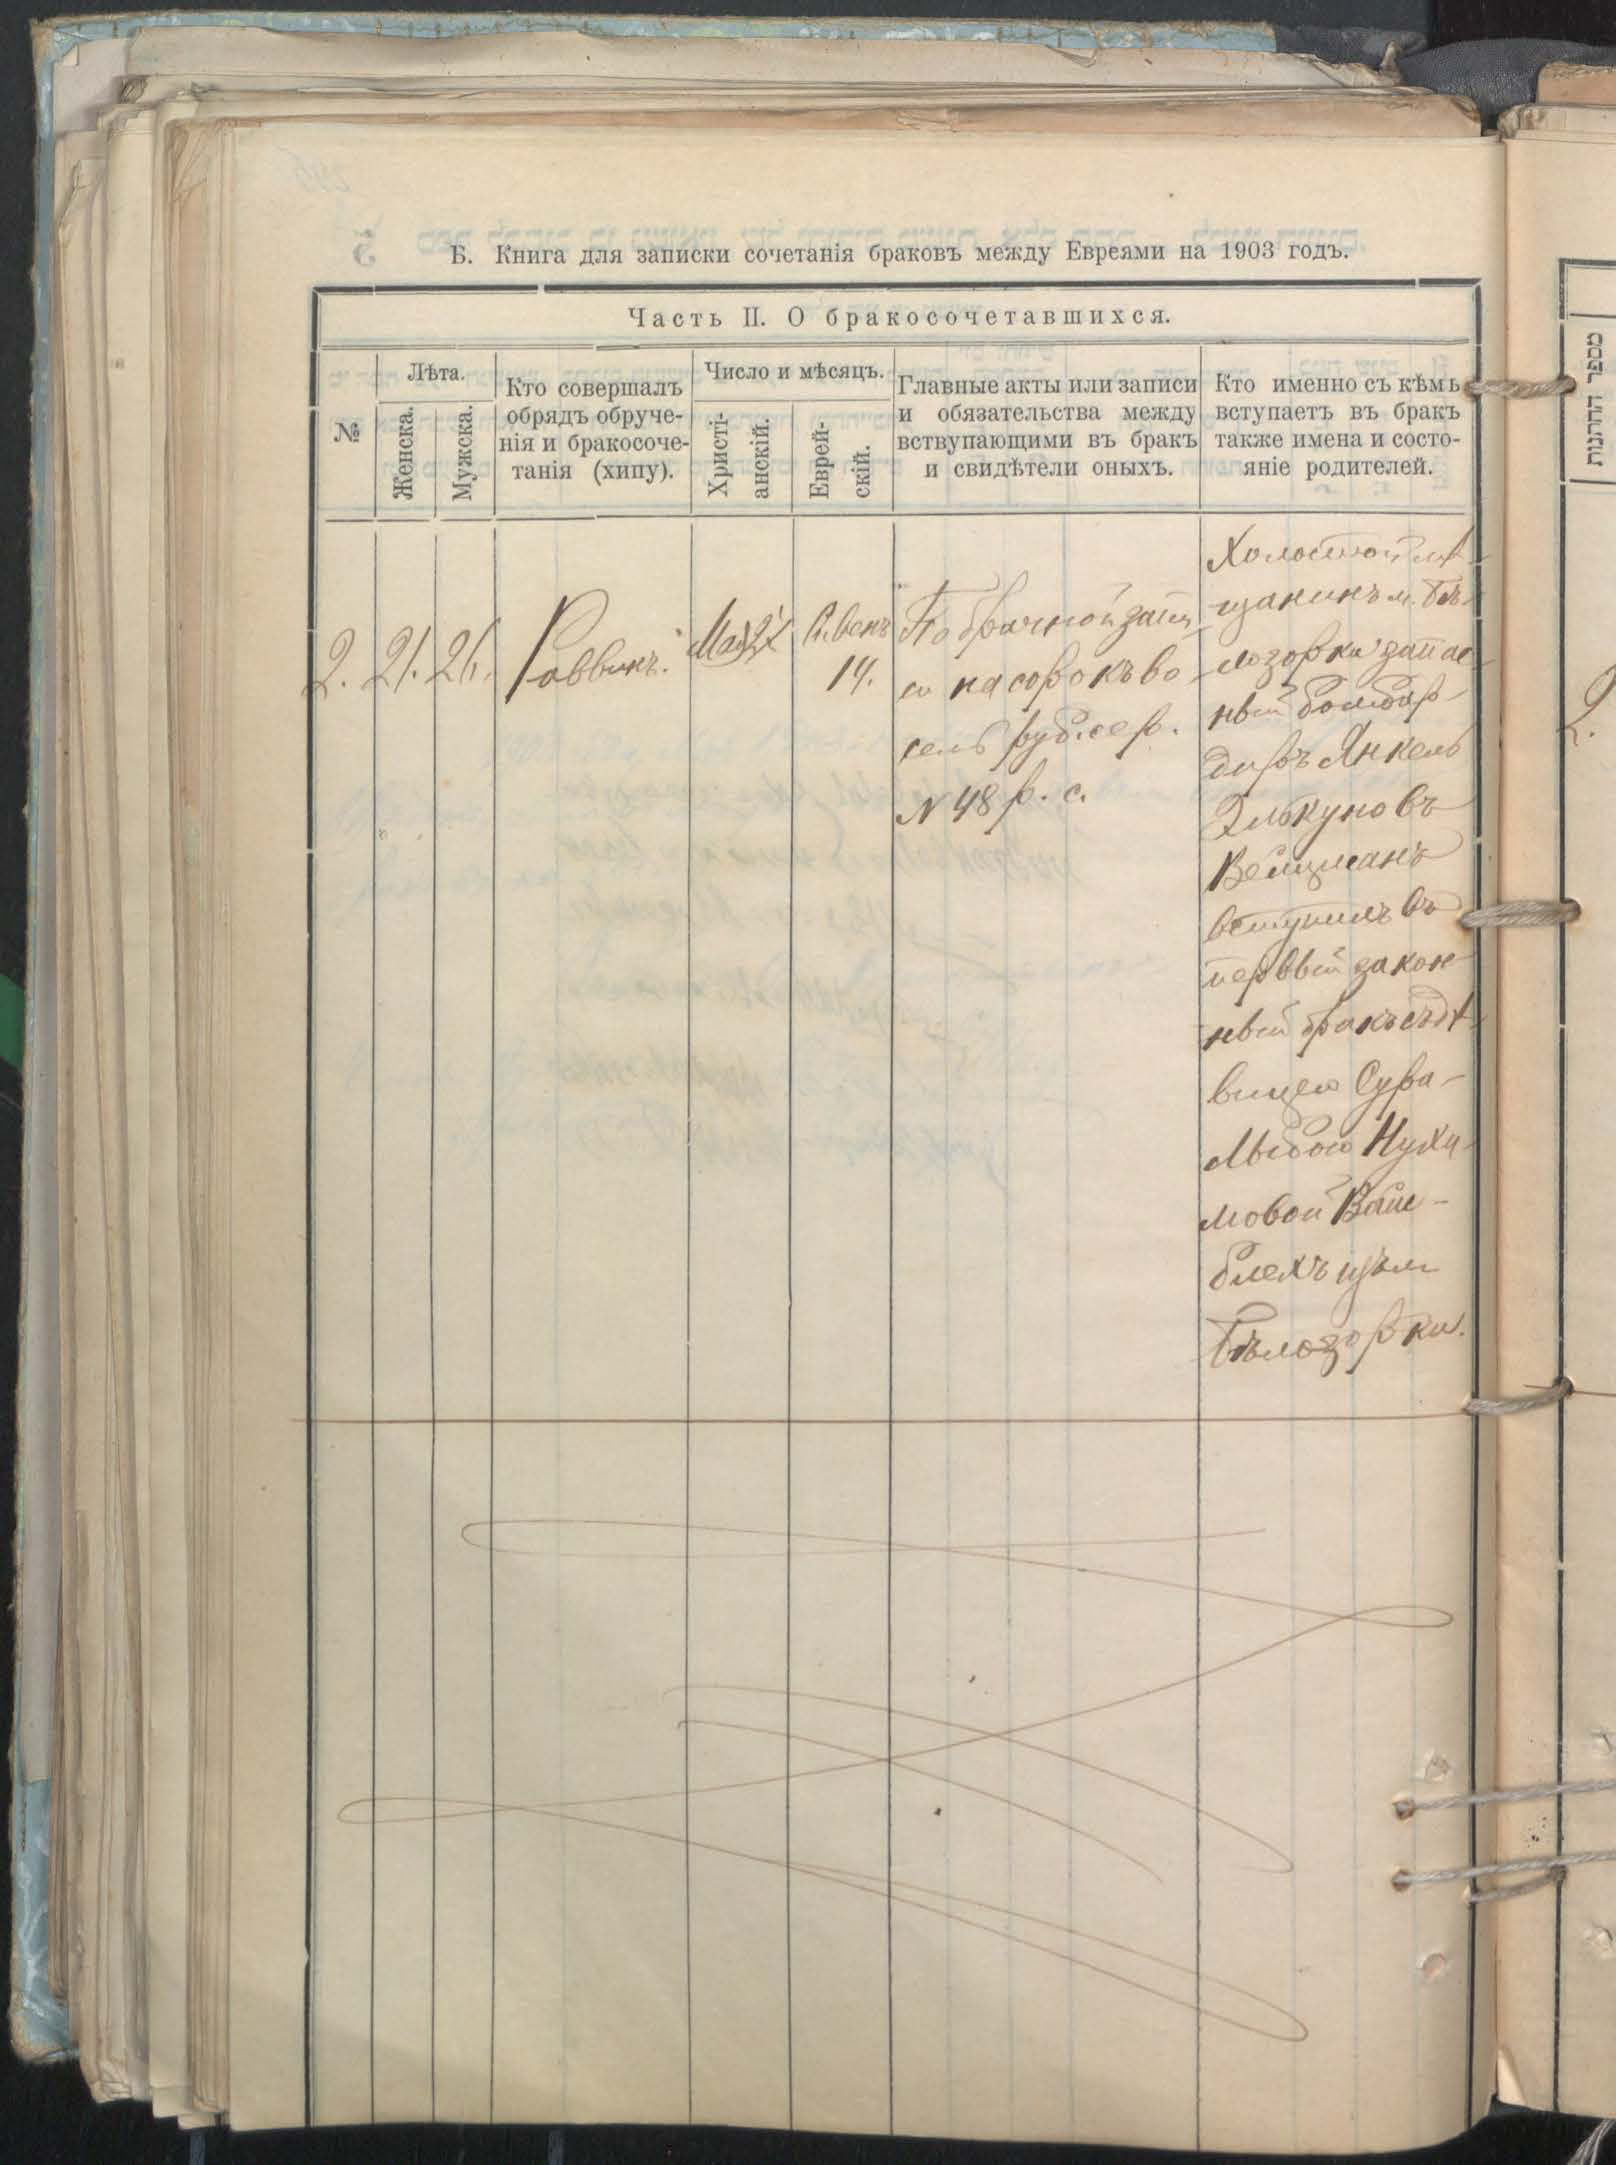 Б. Книга для записки сочетанія браковъ между Евреями на 1903 годъ.
Часть II. О бракосочетавшихся.
№
Лѣта.
Женска.
Мужска.
Кто совершалъ
обрядъ обруче-
нія и бракосоче-
танія (хипу).
Число и мѣсяцъ.
Христі-
анскій.
Еврей-
скій.
Главные акты или записи
и обязательства между
вствупающими въ бракъ
и свидѣтели оныхъ.
Кто именно съ кѣмъ
вступаетъ въ бракъ
также имена и состо-
яніе родителей.
2.
21.
26.
Раввинъ.
Мая 27
Сивенъ
14.
По брачной запи
си на сорокъ во
семь руб. сер.
N 48 р. с.
Холостой мѣ-
щанинъ м. Бѣ-
лозорки запас-
ный бомбар-
диръ Янкель
Элькуновъ
Вейцманъ
вступилъ въ
первый закон-
ный бракъ съ дѣ-
вицею Сура-
Лыбою Нухи-
мовой Вайс-
блехъ изъ м.
Бѣлозорки.
מספר החתונות
2.